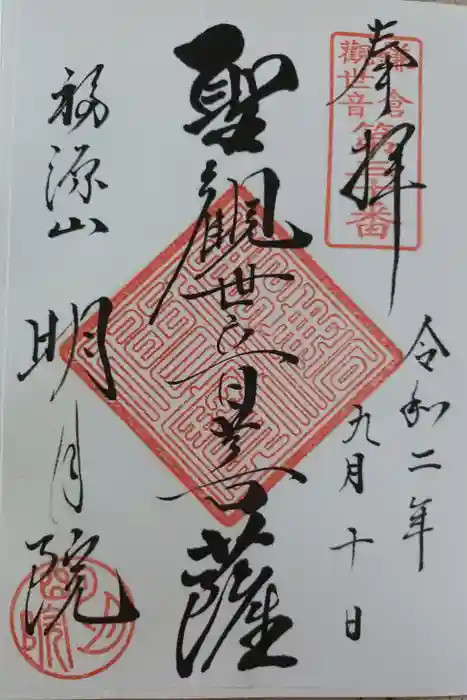 奉拜
鎌倉
觀世音
第
番
令和二年
九月十日
聖觀世音菩薩
福源山
明月院